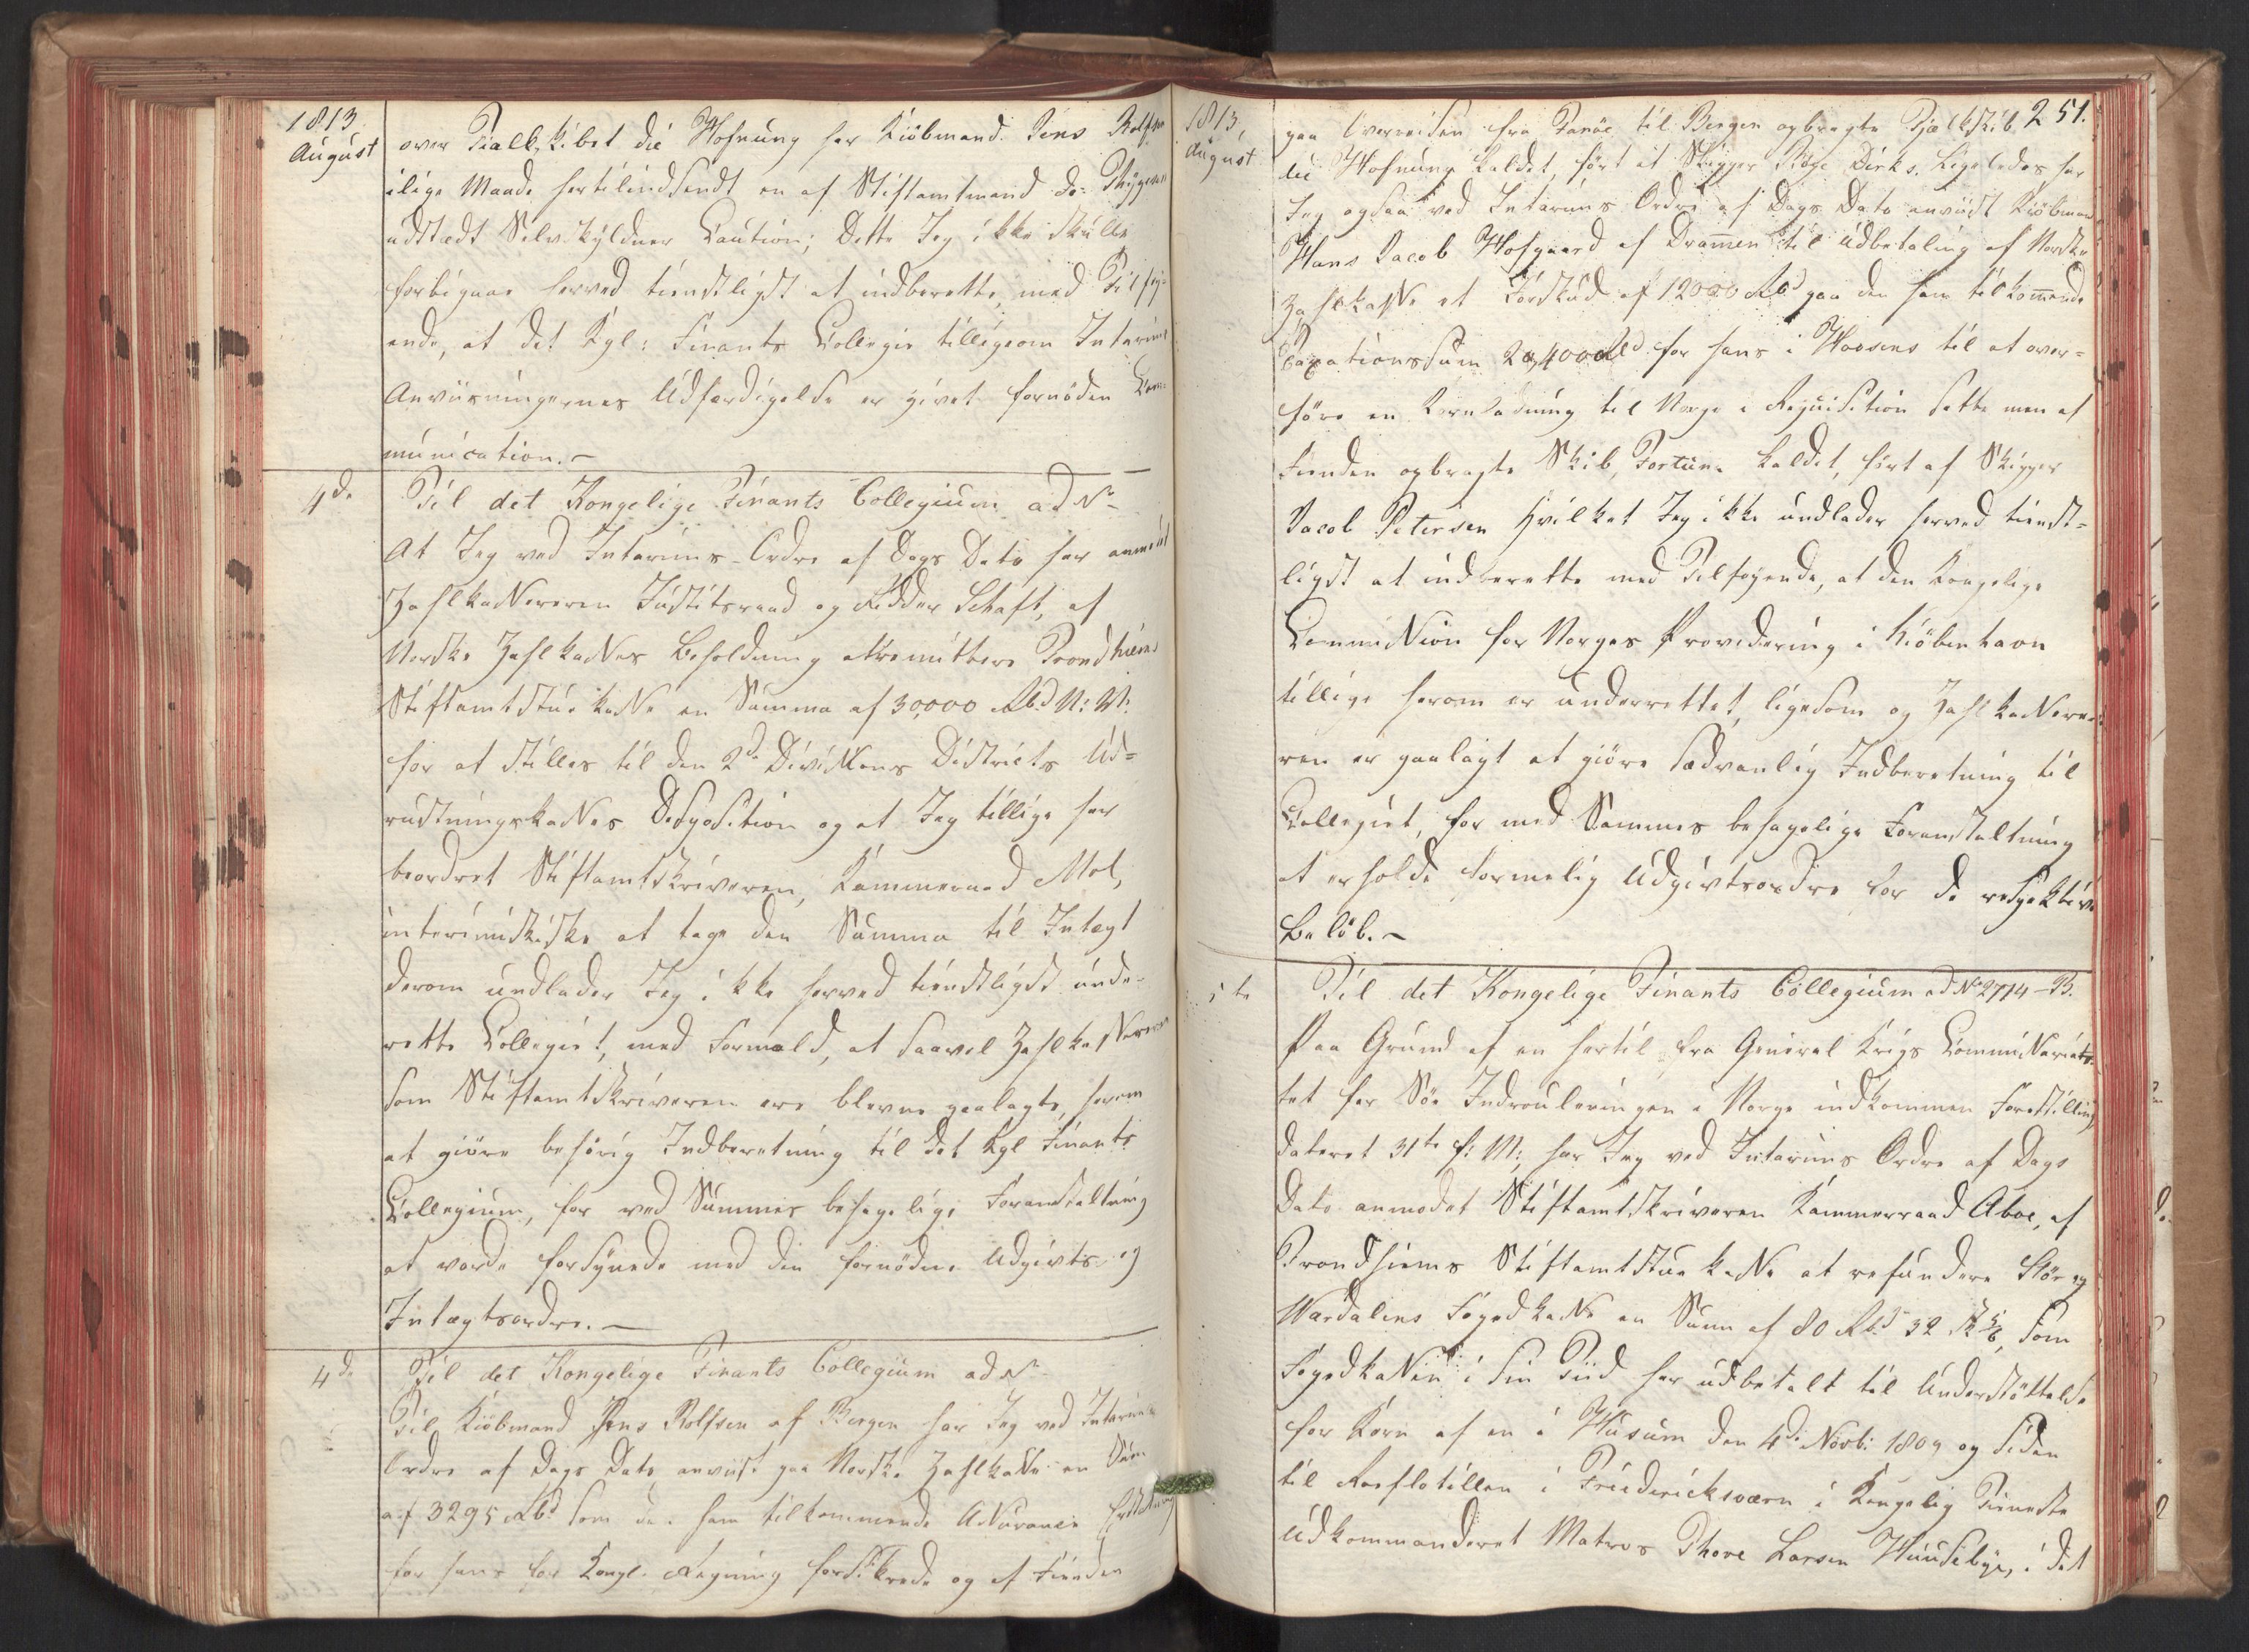 1813
August
over Jalkskibet die Hofnung har Kiöbmand Jens Rolfsen
ilige Maade hertilindsendt en af Stiftamtmand de Thygeson
udstædt Selvskyldner Caution; Dette Jeg ikke skulle
forbigaae herved tienstligst at indberette, med Tilføy-
ende, at det Kgl: Finants Collegie tilligeom Interims
Anviisningernes Udfærdigelse er givet fornøden Com-
munication.
4de
Til det Kongelige Finants Collegium ad No
At Jeg ved Interims-Ordre af Dags Dato har anmodet
Zahlkasserer Justitsraad og Ridder Schaft, af
Norske Zahlkasses Beholdning at remittere Trondhiems
Stiftamtstue Kasse en Summa af 30,000 Rbd N: V:
for at stilles til den 2de Divisions Districts Ud-
rustningskasses Disposition og at Jeg tillige har
beordret Stiftamtskriveren, Kammerraad Mol,
interimistiske at tage den Summa til Indtægt
derom undlader Jeg ikke herved tienstligst under-
rette Collegiet, med Formæld, at saavel Zahlkassereren
som Stiftamtskriveren ere blevne paalagte, herom
at giöre behörig Indberetning til det Kgl Finants
Collegium, for ved Sammes behagelige Foranstaltning
at vorde forsynede med den fornødne Udgivts- og
Indtægtsordre.
4de
Til det Kongelige Finants Collegium ad No
Til Kiöbmand Jens Rolfsen af Bergen har Jeg ved Interims
Ordre af Dags Dato anviist paa Norske Zahlkasse en Sum
af 3295 Rbd som den ham tilkommende Assurance Erstatning
for hans for Kongl. Regning forsikrede og af Fienden
1813,
August
251.
paa Overreisen fra Fanöe til Bergen opbragte Jalkskib
die Hofnung kaldet, fört af Skipper Dirks. Ligeledes har
Jeg ogsaa ved Interims Ordre af Dags Dato anviist Kiöbmand
Hans Jacob Hofgaard af Dramen til Udbetaling af Norske
Zahlkasse et Forskud af 12000 Rbd paa den ham tilkommende
Taxationssum 20,400 Rbd for hans i Horsens til at over-
føre en Kornladning til Norge i Requisition satte men af
Fienden opbragte Skib, Fortuna kaldet, fört af Skipper
Jacob Petersen hvilket Jeg ikke undlader herved tienst-
ligst at indberette med Tilføyende, at den Kongelige
Commission for Norges Providering i Kiöbenhavn
tillige herom er underrettet, ligesom og Zahlkassere-
ren er paalagt at giöre sædvanlig Indberetning til
Collegiet, for med Sammes behagelige Foranstaltning
at erholde formelig Udgivtsordre for de respektive
Belöb.
5te
Til det Kongelige Finants Collegium ad No 2714-B.
Paa Grund af en hertil fra General Krigs Commissariats-
tet for Söe Indrouleringen i Norge indkommen Forestilling
dateret 31te f: M:, har Jeg ved Interims Ordre af Dags
Dato anmodet Stiftamtskriveren Kammerraad Aboe, af
Trondhiems Stiftamtstue Kasse at refundere Stör og
Værdalens Fogedkasse en Sum af 80 Rbd 32 s, som
Fogedkassen i sin Tiid har udbetalt til Understöttelse
for Korn af en i Husum den 4de Novbr: 1809 og siden
til Roeflotillen i Friederichsværn i Kongelig Tieneste
udkommanderet Matros Thore Larsen Huusebye, i det